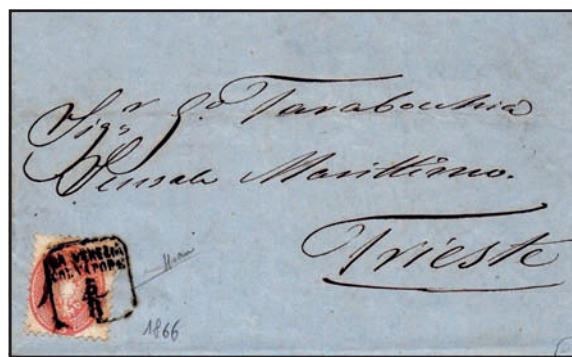 Sigr G. Tarabochia
Sensale Marittimo.
Trieste
DA VENEZIA
COL VAPORE
5
1866